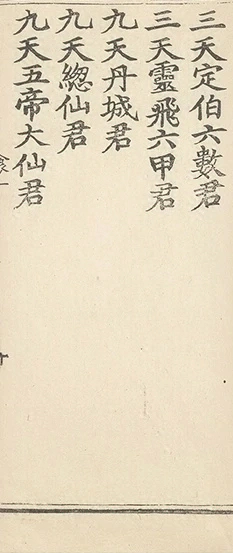 三天定伯六數君
三天靈飛六甲君
九天丹城君
九天緫仙君
九天五帝大仙君